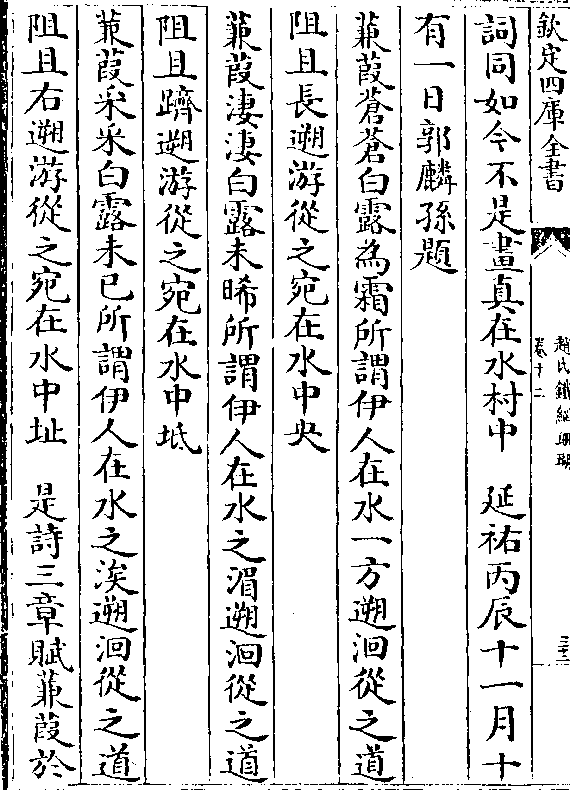 欽定四庫全書
趙氏鐵網珊瑚
卷十二
三十三
詞同如今不是畫真在水村中　延祐丙辰十一月十
有一日郭麟孫題
蒹葭蒼蒼白露為霜所謂伊人在水一方遡洄從之道
阻且長遡游從之宛在水中央
蒹葭淒淒白露未晞所謂伊人在水之湄遡洄從之道
阻且躋遡游從之宛在水中坻
蒹葭采采白露未已所謂伊人在水之涘遡洄從之道
阻且右遡游從之宛在水中址　是詩三章賦蒹葭於